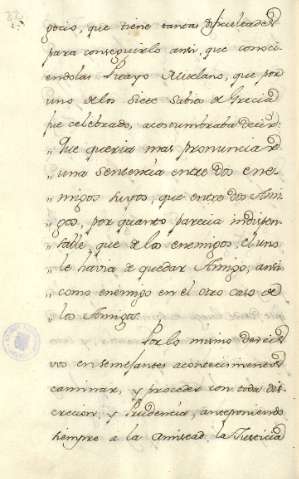 gocio, que tiene tantas dificultades
para conseguirlo assi, que conoci-
endolas Picayo Mixelano, que por
uno de los Siete Sabios de Grecia
fue celebrado, acostumbraba decir:
„ Que queria mas pronunciar
„ una sentencia entre dos ene-
„ migos suyos, que entre dos Ami-
„ gos, por quanto parecia indispen-
„ sable, que de los enemigos, el uno
„ le havia de quedar Amigo, assi
„ como enemigo en el otro caso de
„ los Amigos.
Por lo mismo
en semejantes acontecimientos
caminar, y proceder con toda dis-
crecion, y Prudencia, anteponiendo
siempre a la amistad, la Justicia